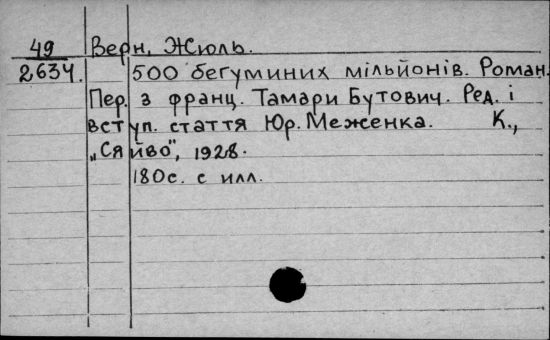 49 Верн, Жюль.
2634. 500 бегуминих мільйонів. Роман.
Пер. з франц. Тамари Бутович. Ред. і
вступ. стаття Юр. Меженка. К.,
„Сяйво", 1928.
180с. с илл.